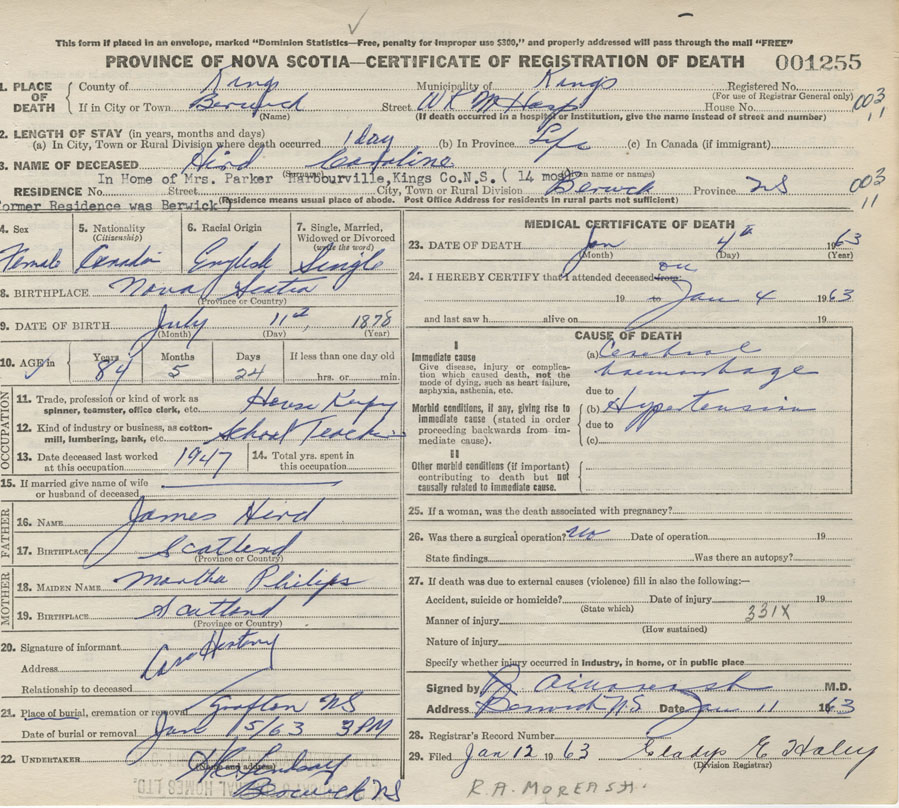 This form if placed in an envelope, marked "Dominion Statistics—Free, penalty for improper use $300," and properly addressed will pass through the mail "FREE"
PROVINCE OF NOVA SCOTIA—CERTIFICATE OF REGISTRATION OF DEATH 001255
1. PLACE OF DEATH County of Kings Municipality of Kings Registered No.
(For use of Registrar General only)
If in City or Town Berwick Street W K M Hosp House No. 003
(Name) (If death occurred in a hospital or institution, give the name instead of street and number) 11
2. LENGTH OF STAY (in years, months and days)
(a) In City, Town or Rural Division where death occurred 1 day (b) In Province Life (c) In Canada (if immigrant)
3. NAME OF DECEASED Hird Caroline
(Surname) (Given name or names)
In Home of Mrs. Parker Harbourville, Kings Co.N.S. ( 14 mos
RESIDENCE No. Street City, Town or Rural Division Berwick Province NS 003
Former Residence was Berwick ) (Residence means usual place of abode. Post Office Address for residents in rural parts not sufficient) 11
4. Sex 5. Nationality 6. Racial Origin 7. Single, Married, Widowed or Divorced
(Citizenship) (write the word)
Female Canadian English Single
8. BIRTHPLACE Nova Scotia
(Province or Country)
9. DATE OF BIRTH July 11th, 1878
(Month) (Day) (Year)
10. AGE in Years Months Days If less than one day old
84 5 24 hrs. or min.
OCCUPATION
11. Trade, profession or kind of work as spinner, teamster, office clerk, etc. House Keeping
12. Kind of industry or business, as cotton-mill, lumbering, bank, etc. School Teacher
13. Date deceased last worked at this occupation 1947 14. Total yrs. spent in this occupation
15. If married give name of wife or husband of deceased
FATHER
16. NAME James Hird
17. BIRTHPLACE Scotland
(Province or Country)
MOTHER
18. MAIDEN NAME Martha Philips
19. BIRTHPLACE Scotland
(Province or Country)
20. Signature of informant
Address
Relationship to deceased
21. Place of burial, cremation or removal Grafton NS
Date of burial or removal Jan 5/63 3 PM
22. UNDERTAKER H.C. Lindsay
(Name and address)
Berwick NS
MEDICAL CERTIFICATE OF DEATH
23. DATE OF DEATH Jan 4th 1963
(Month) (Day) (Year)
24. I HEREBY CERTIFY that I attended deceased from: on
19 to Jan 4 1963
and last saw h alive on 19
CAUSE OF DEATH
I
Immediate cause
Give disease, injury or complication which caused death, not the mode of dying, such as heart failure, asphyxia, asthenia, etc.
(a) Cerebral haemorrhage
due to
Morbid conditions, if any, giving rise to immediate cause (stated in order proceeding backwards from immediate cause).
(b) Hypertension
due to
(c)
II
Other morbid conditions (if important) contributing to death but not causally related to immediate cause.
25. If a woman, was the death associated with pregnancy?
26. Was there a surgical operation? no Date of operation 19
State findings Was there an autopsy?
27. If death was due to external causes (violence) fill in also the following:—
Accident, suicide or homicide? Date of injury 19
(State which) 331X
Manner of injury
(How sustained)
Nature of injury
Specify whether injury occurred in industry, in home, or in public place
Signed by M.D.
Address Berwick N.S. Date Jan 11 1963
28. Registrar's Record Number
29. Filed Jan 12 1963 Gladys E Haley
(Division Registrar)
R.A. MOREASH.